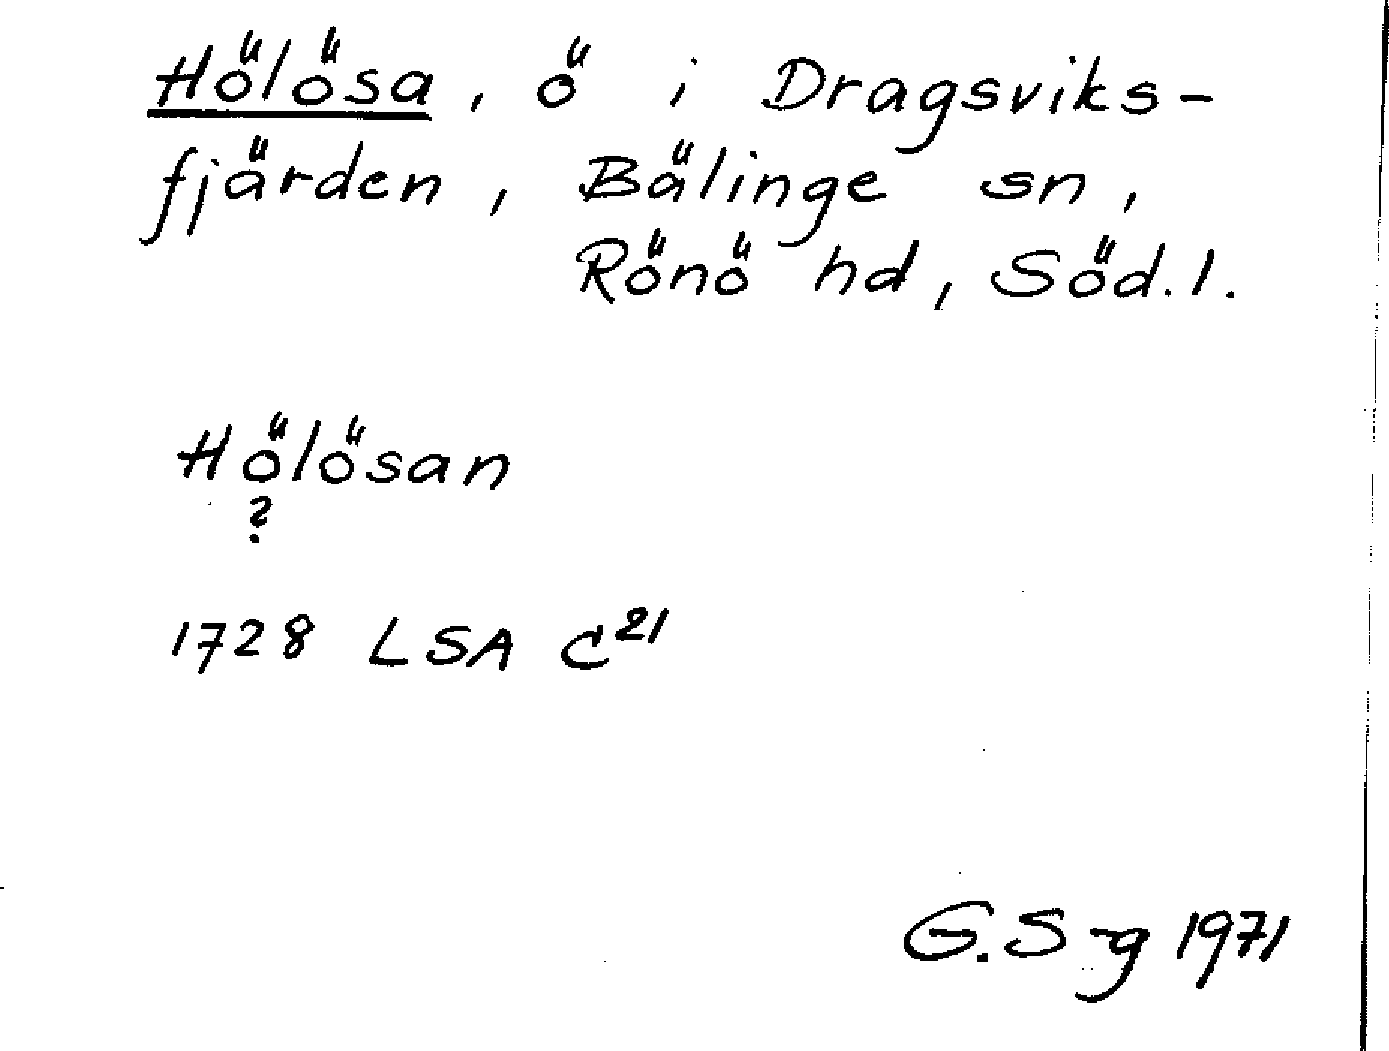 Hölösa, ö i Dragsviks-
fjärden, Bälinge sn,
Rönö hd, Söd.l.
Hölösan
?
1728 LSA C²¹
G.S-g 1971